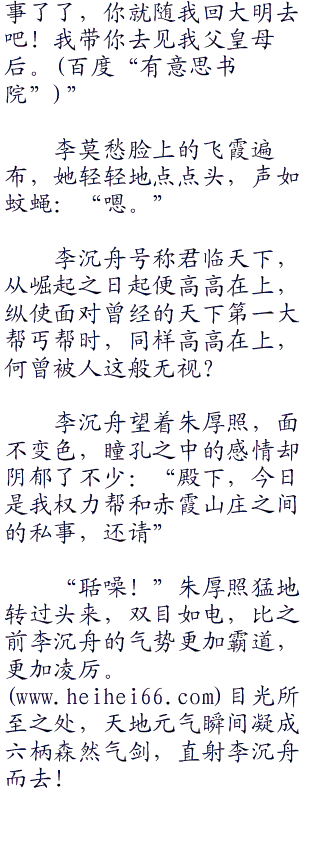 事了了，你就随我回大明去
吧！我带你去见我父皇母
后。(百度“有意思书
院”)”
李莫愁脸上的飞霞遍
布，她轻轻地点点头，声如
蚊蝇：“嗯。”
李沉舟号称君临天下，
从崛起之日起便高高在上，
纵使面对曾经的天下第一大
帮丐帮时，同样高高在上，
何曾被人这般无视？
李沉舟望着朱厚照，面
不变色，瞳孔之中的感情却
阴郁了不少：“殿下，今日
是我权力帮和赤霞山庄之间
的私事，还请”
“聒噪！”朱厚照猛地
转过头来，双目如电，比之
前李沉舟的气势更加霸道，
更加凌厉。
(www.heihei66.com)目光所
至之处，天地元气瞬间凝成
六柄森然气剑，直射李沉舟
而去！